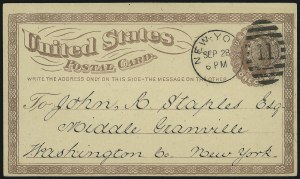 United States
POSTAL CARD.
WRITE THE ADDRESS ONLY ON THIS SIDE - THE MESSAGE ON THE OTHER
NEW-YORK
SEP 28
6 PM
11
To John, M Staples Esq
Middle Granville
Washington Co. New York.